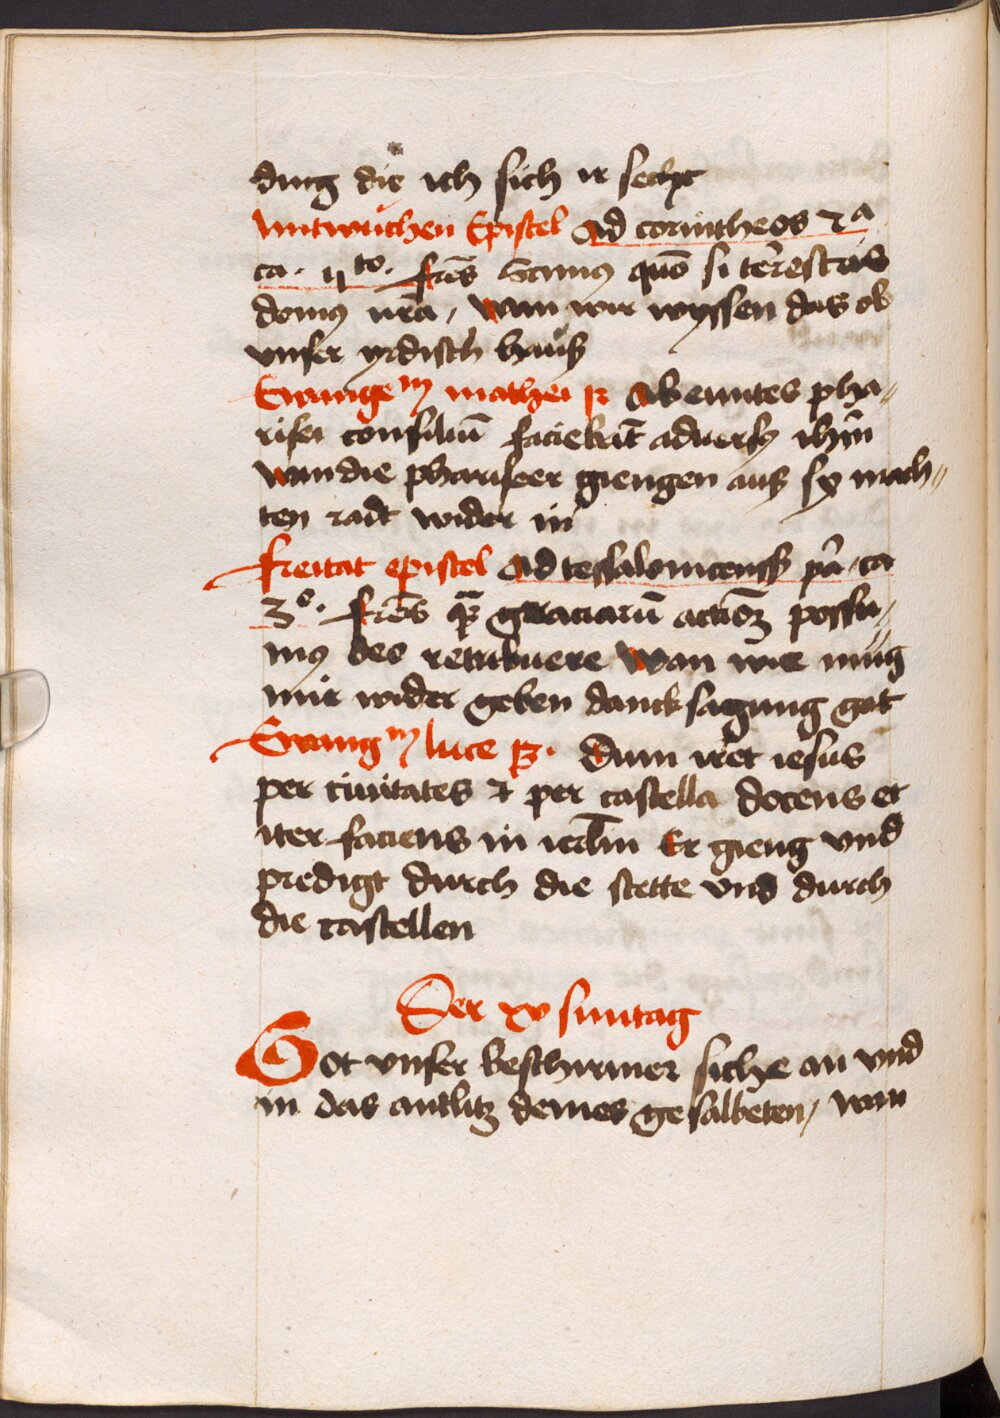 ding die ich sich ir secht
Mitwuchen Epistel Ad corintheos 2a
ca. 4to. fr̄es Scimꝰ quō si tērestris
domꝰ nr̄a / wan wir wyssen das ob
vnser yrdisch hauß
Ewangem mathei 12 Abeuntes pha„
risei consiliū faciebāt adversꝰ ihm̄
wan die phariseer giengen auß sy mach„
ten radt wider in
freitat epistel Ad tessalonicenss pa ca
3o. fr̄es graciarū actiōꝫ possu„
mꝰ deo retribuere wan wie mug
mir wider geben dancksagung got
Ewangm luce 13. Dum iret iesus
per ciuitates et per castella docens et
iter faciens in ierl̄m Er gieng vnd
predigt durch die stette vnd durch
die castellen
Der xv suntag
Got vnser beschirmer siche an vnd
in das antlitz deines gesalbeten / wan